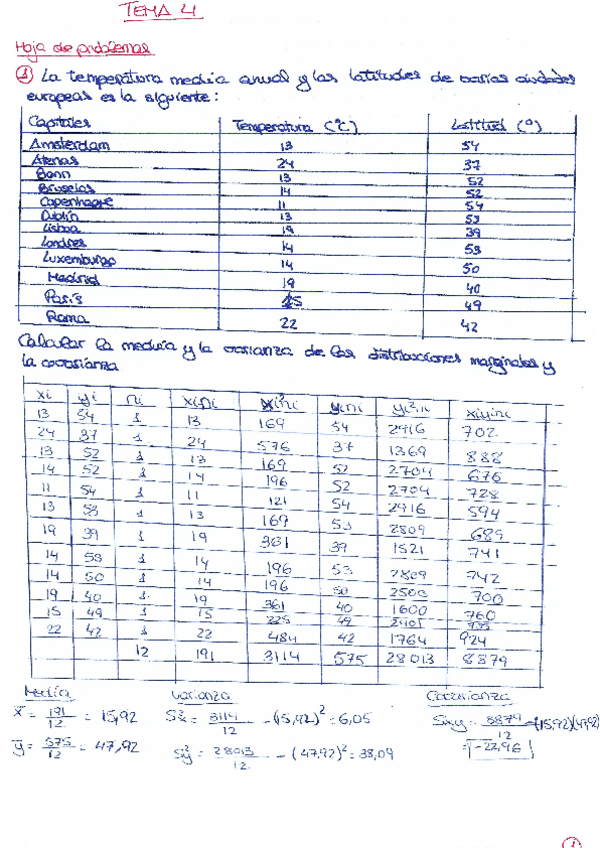 TEMA 4
Hoja de problemas
① La temperatura media anual y las latitudes de varias ciudades
europeas es la siguiente:
Capitales Temperatura (ºC) Latitud (º)
Amsterdam 13 54
Atenas 24 37
Bonn 13 52
Bruselas 14 52
Copenhague 11 54
Dublín 13 53
Lisboa 19 39
Londres 14 53
Luxemburgo 14 50
Madrid 19 40
París 15 49
Roma 22 42
Calcular la media y la varianza de las distribuciones marginales y
la covarianza
xi yi ni xini xi²ni yini yi²ni xiyini
13 54 1 13 169 54 2916 702
24 37 1 24 576 37 1369 888
13 52 1 13 169 52 2704 676
14 52 1 14 196 52 2704 728
11 54 1 11 121 54 2916 594
13 53 1 13 169 53 2809 689
19 39 1 19 361 39 1521 741
14 53 1 14 196 53 2809 742
14 50 1 14 196 50 2500 700
19 40 1 19 361 40 1600 760
15 49 1 15 225 49 2401 735
22 42 1 22 484 42 1764 924
12 191 3114 575 28013 8879
Media varianza Covarianza
x̄ = 191/12 = 15,92 S²x = 3114/12 - (15,92)² = 6,05 Sxy = 8879/12 - (15,92)(47,92)
ȳ = 575/12 = 47,92 S²y = 28013/12 - (47,92)² = 38,09 = -22,96
1